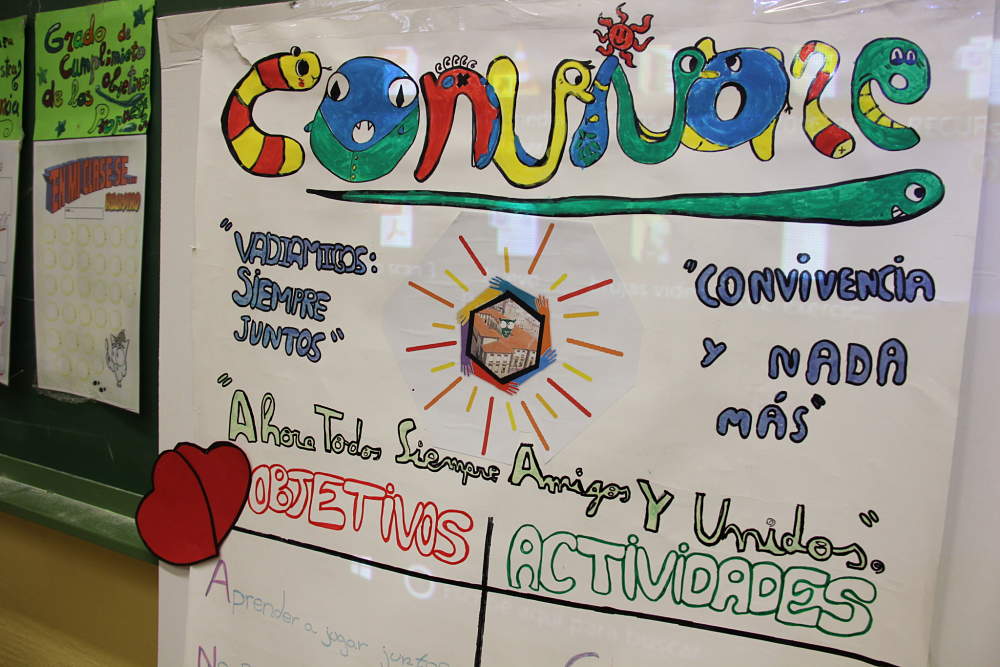 Grado de
Cumplimiento
de los objetivos
EN MI CLASE SE...
CONVIVARE
"VADIAMIGOS:
SIEMPRE
JUNTOS"
"CONVIVENCIA
Y NADA
MÁS"
"Ahora Todos Siempre Amigos Y Unidos."
OBJETIVOS
ACTIVIDADES
Aprender a jugar juntos